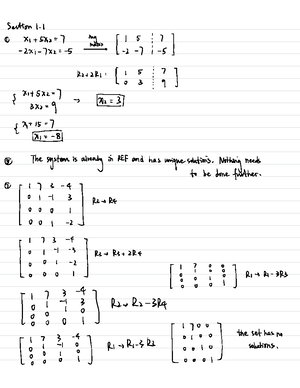 Section 1.1
① x₁ + 5x₂ = 7
-2x₁ - 7x₂ = -5
aug matrix
[ 1 5 | 7 ]
[ -2 -7 | -5 ]
R₂+2R₁:
[ 1 5 | 7 ]
[ 0 3 | 9 ]
{ x₁ + 5x₂ = 7
3x₂ = 9 → x₂ = 3
{ x₁ + 15 = 7
x₁ = -8
The system is already in REF and has unique solutions. Nothing needs
to be done further.
[ 1 7 3 -4 ]
[ 0 1 -1 3 ]
[ 0 0 0 1 ]
[ 0 0 1 -2 ]
[ 1 7 3 -4 ]
[ 0 1 -1 -3 ]
[ 0 0 1 -2 ]
[ 0 0 0 1 ]
R₃→ R₃ + 2R4
[ 1 7 0 0 ]
R₁→ R₁ - 3R3
[ 1 7 3 -4 ]
[ 0 1 -1 3 ]
[ 0 0 1 0 ]
[ 0 0 0 1 ]
R₂→ R₂ - 3R4
[ 1 7 3 -4 ]
[ 0 1 -1 0 ]
[ 0 0 1 0 ]
[ 0 0 0 1 ]
[ 1 7 0 0 ]
[ 0 1 0 0 ]
[ 0 0 1 0 ]
[ 0 0 0 1 ]
the set has no
solutions.